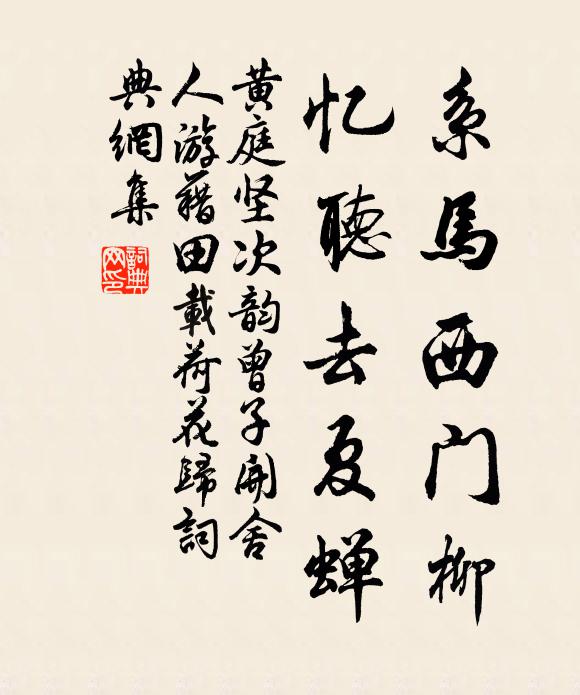 系馬西门柳
忆聽去夏蝉
黄庭坚次韵曾子開舍
人游藉田載荷花歸詞
典網集
詞典
网印